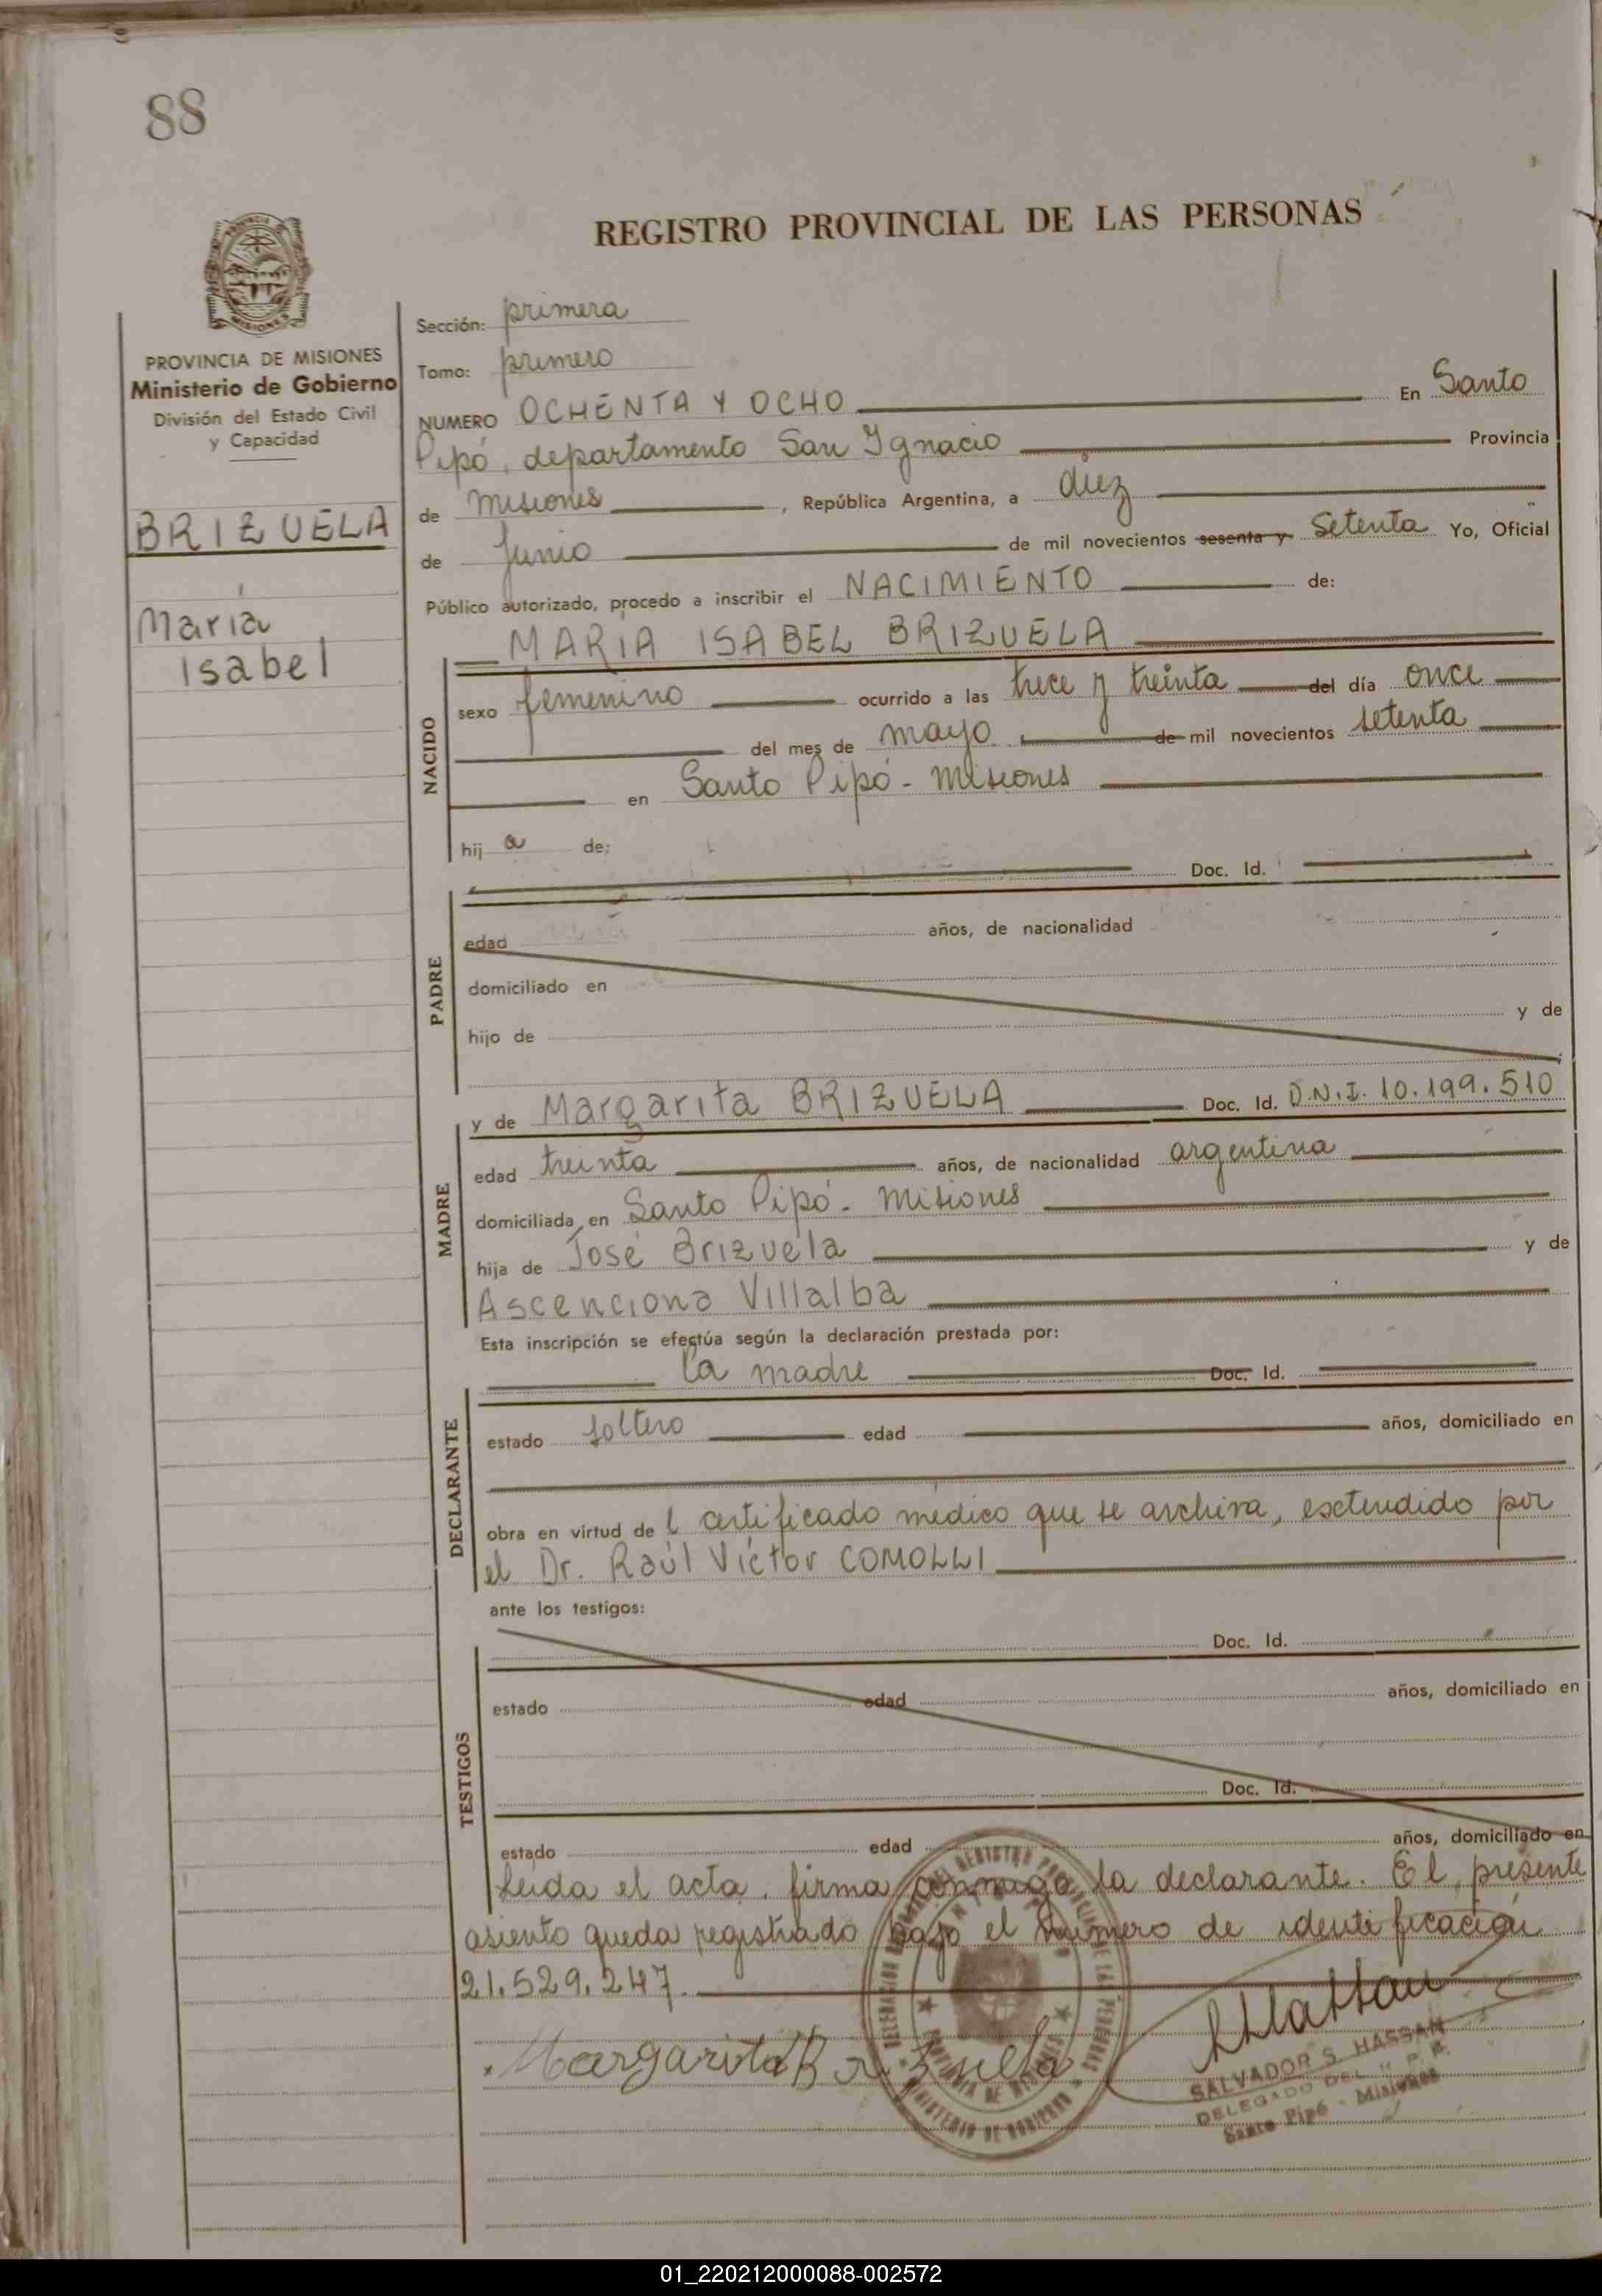 88
REGISTRO PROVINCIAL DE LAS PERSONAS
PROVINCIA DE MISIONES
Ministerio de Gobierno
División del Estado Civil
y Capacidad
BRIZUELA
María
Isabel
Sección: primera
Tomo: primero
NUMERO OCHENTA Y OCHO En Santo
Pipó, departamento San Ignacio Provincia
de Misiones, República Argentina, a diez
de Junio de mil novecientos sesenta y Setenta Yo, Oficial
Público autorizado, procedo a inscribir el NACIMIENTO de:
MARÍA ISABEL BRIZUELA
NACIDO
sexo femenino ocurrido a las trece y treinta del día once
del mes de mayo de mil novecientos setenta
en Santo Pipó - Misiones
hij a de:
Doc. Id.
PADRE
edad años, de nacionalidad
domiciliado en
hijo de y de
y de Margarita BRIZUELA Doc. Id. D.N.I. 10.199.510
MADRE
edad treinta años, de nacionalidad argentina
domiciliada en Santo Pipó - Misiones
hija de José Brizuela y de
Ascenciona Villalba
Esta inscripción se efectúa según la declaración prestada por:
la madre Doc. Id.
DECLARANTE
estado soltero edad años, domiciliado en
obra en virtud de l certificado médico que se archiva, exctendido por
el Dr. Raúl Víctor COMOLLI
ante los testigos:
Doc. Id.
TESTIGOS
estado edad años, domiciliado en
Doc. Id.
estado edad años, domiciliado en
Leída el acta, firma conmigo la declarante. El presente
asiento queda registrado bajo el número de identificación
21.529.247.
Margarita Brizuela
SALVADOR S. HASSAN
DELEGADO DEL R. P. P.
Santo Pipó - Misiones
01_220212000088-002572